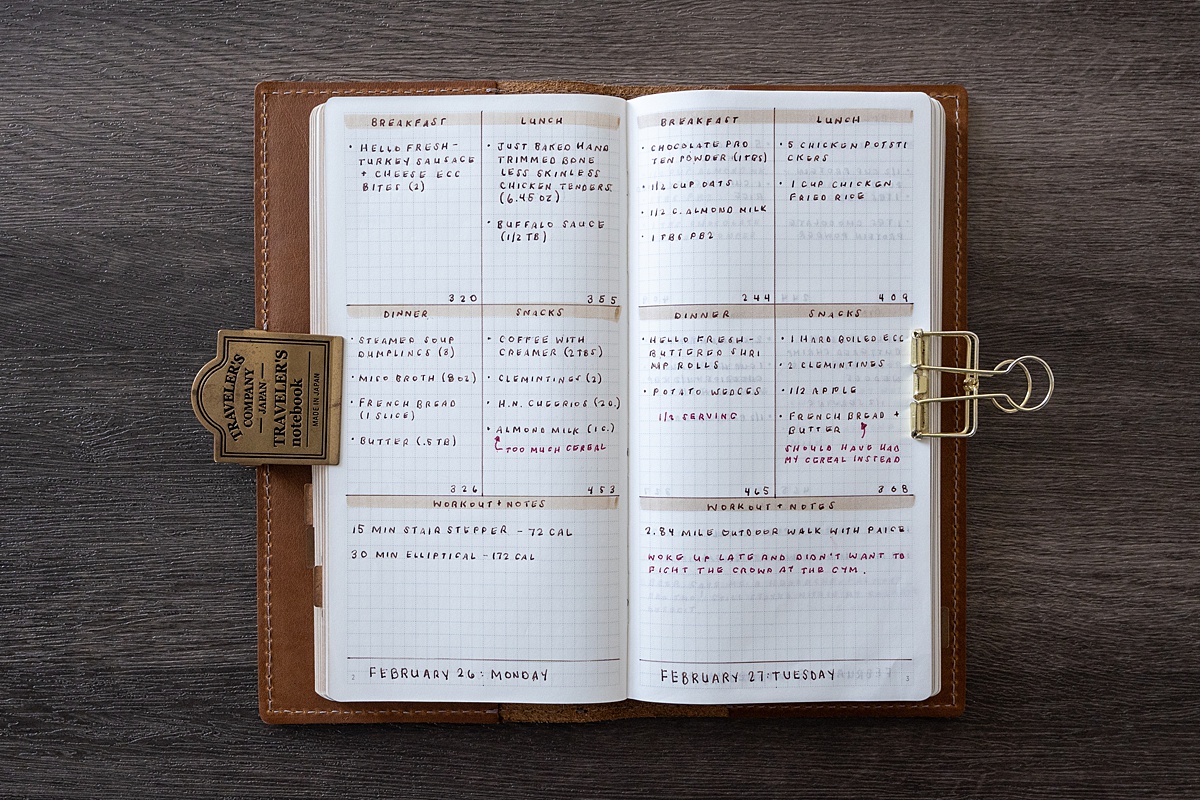 BREAKFAST
• HELLO FRESH -
TURKEY SAUSAGE
+ CHEESE EGG
BITES (2)
320
LUNCH
• JUST BAKED HAND
TRIMMED BONE
LESS SKINLESS
CHICKEN TENDERS
(6.45 OZ)
• BUFFALO SAUCE
(1/2 TB)
355
DINNER
• STEAMED SOUP
DUMPLINGS (8)
• MISO BROTH (8OZ)
• FRENCH BREAD
(1 SLICE)
• BUTTER (.5TB)
326
SNACKS
• COFFEE WITH
CREAMER (2TBS)
• CLEMENTINGS (2)
• H.N. CHEERIOS (2C.)
• ALMOND MILK (1C.)
TOO MUCH CEREAL
453
WORKOUT + NOTES
15 MIN STAIR STEPPER - 72 CAL
30 MIN ELLIPTICAL - 172 CAL
2 FEBRUARY 26: MONDAY
BREAKFAST
• CHOCOLATE PRO
TEN POWDER (1TBS)
• 1/2 CUP OATS
• 1/2 C. ALMOND MILK
• 1 TBS PB2
244
LUNCH
• 5 CHICKEN POTSTI
CKERS
• 1 CUP CHICKEN
FRIED RICE
409
DINNER
• HELLO FRESH -
BUTTERED SHRI
MP ROLLS
• POTATO WEDGES
1/2 SERVING
465
SNACKS
• 1 HARD BOILED EGG
• 2 CLEMENTINGS
• 1/2 APPLE
• FRENCH BREAD +
BUTTER
SHOULD HAVE HAD
MY CEREAL INSTEAD
368
WORKOUT + NOTES
2.84 MILE OUTDOOR WALK WITH PAIGE
WOKE UP LATE AND DIDN'T WANT TO
FIGHT THE CROWD AT THE GYM.
FEBRUARY 27: TUESDAY 3
TRAVELER'S
COMPANY
— JAPAN —
TRAVELER'S
notebook
MADE IN JAPAN